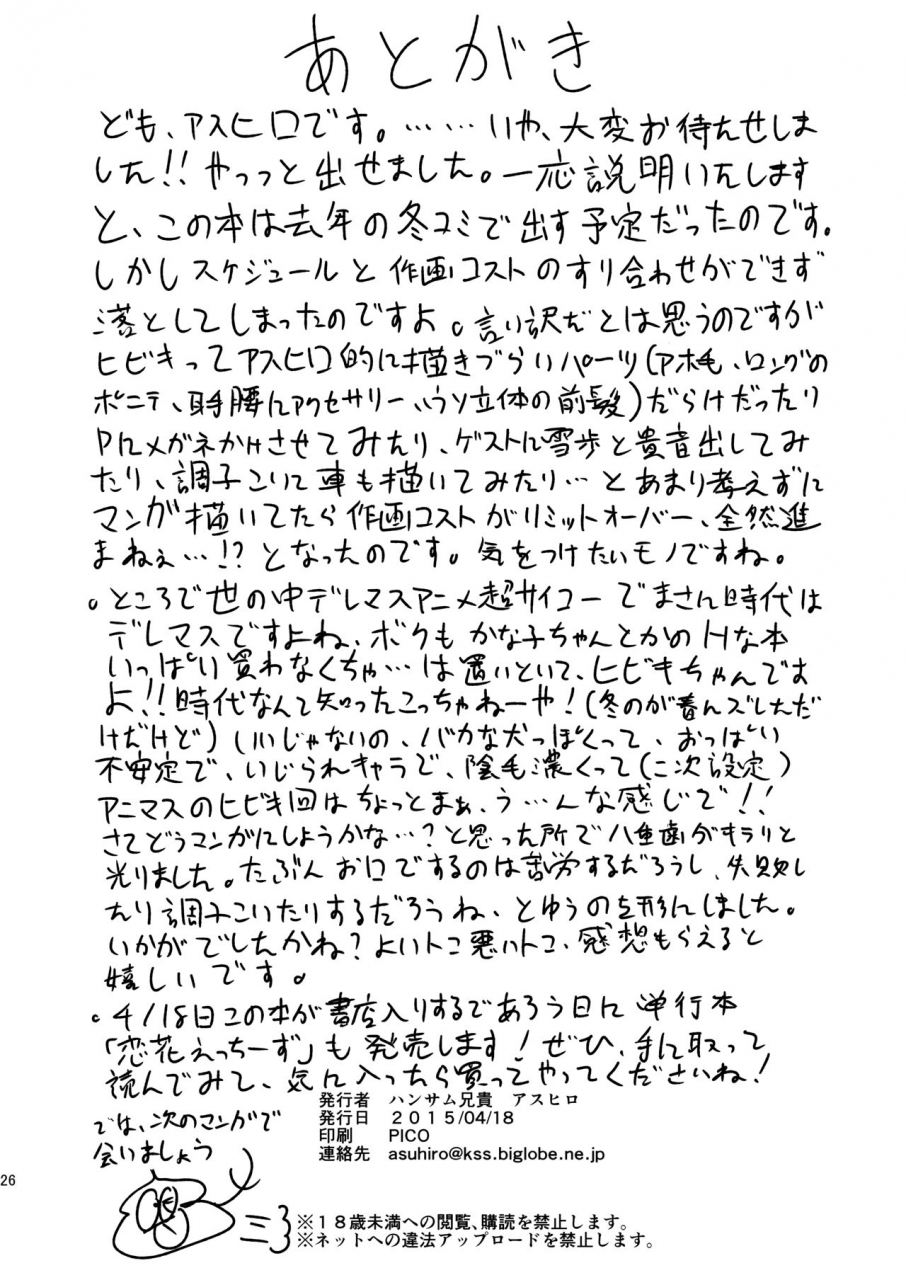 あとがき
ども、アスヒロです。……いや、大変お待たせしま
した!!やっっと出せました。一応説明いたします
と、この本は去年の冬コミで出す予定だったのです。
しかしスケジュールと作画コストのすり合わせができず
落としてしまったのですよ。言い訳だとは思うのですが
ヒビキってアスヒロ的に描きづらいパーツ(アホ毛、ロングの
ポニテ、耳手腰にアクセサリー、ウソ立体の前髪)だらけだったり
Pにメガネかけさせてみたり、ゲストに雪歩と貴音出してみ
たり、調子こいて車も描いてみたり…とあまり考えずに
マンガ描いてたら作画コストがリミットオーバー、全然進
まねぇ…!?となったのです。気をつけたいモノですね。
。ところで世の中デレマスアニメ超サイコーでまさん時代は
デレマスですよね、ボクもかな子ちゃんとかのHな本
いっぱい買わなくちゃ…は置いといて、ヒビキちゃんです
よ!!時代なんて知ったこっちゃねーや!(冬のが春んズレしただ
けだけど)いいじゃないの、バカな犬っぽくって、おっぱい
不安定で、いじられキャラで、陰毛濃くって(二次設定)
アニマスのヒビキ回はちょっとまぁ、う…んな感じで!!
さてどうマンガにしようかな…?と思った所で八重歯がキラリと
光りました。たぶんお口でするのは苦労するだろうし、失敗し
たり調子こいたりするだろうね、とゆうのを形にしました。
いかがでしたかね?よいトコ悪いトコ、感想もらえると
嬉しいです。
。4/18日この本が書店入りするであろう日に単行本
「恋花えっちーず」も発売します!ぜひ、手に取って
読んでみて、気に入ったら買ってやってくださいね!
では、次のマンガで
会いましょう
発行者 ハンサム兄貴 アスヒロ
発行日 2015/04/18
印刷 PICO
連絡先 asuhiro@kss.biglobe.ne.jp
26
※18歳未満への閲覧、購読を禁止します。
※ネットへの違法アップロードを禁止します。